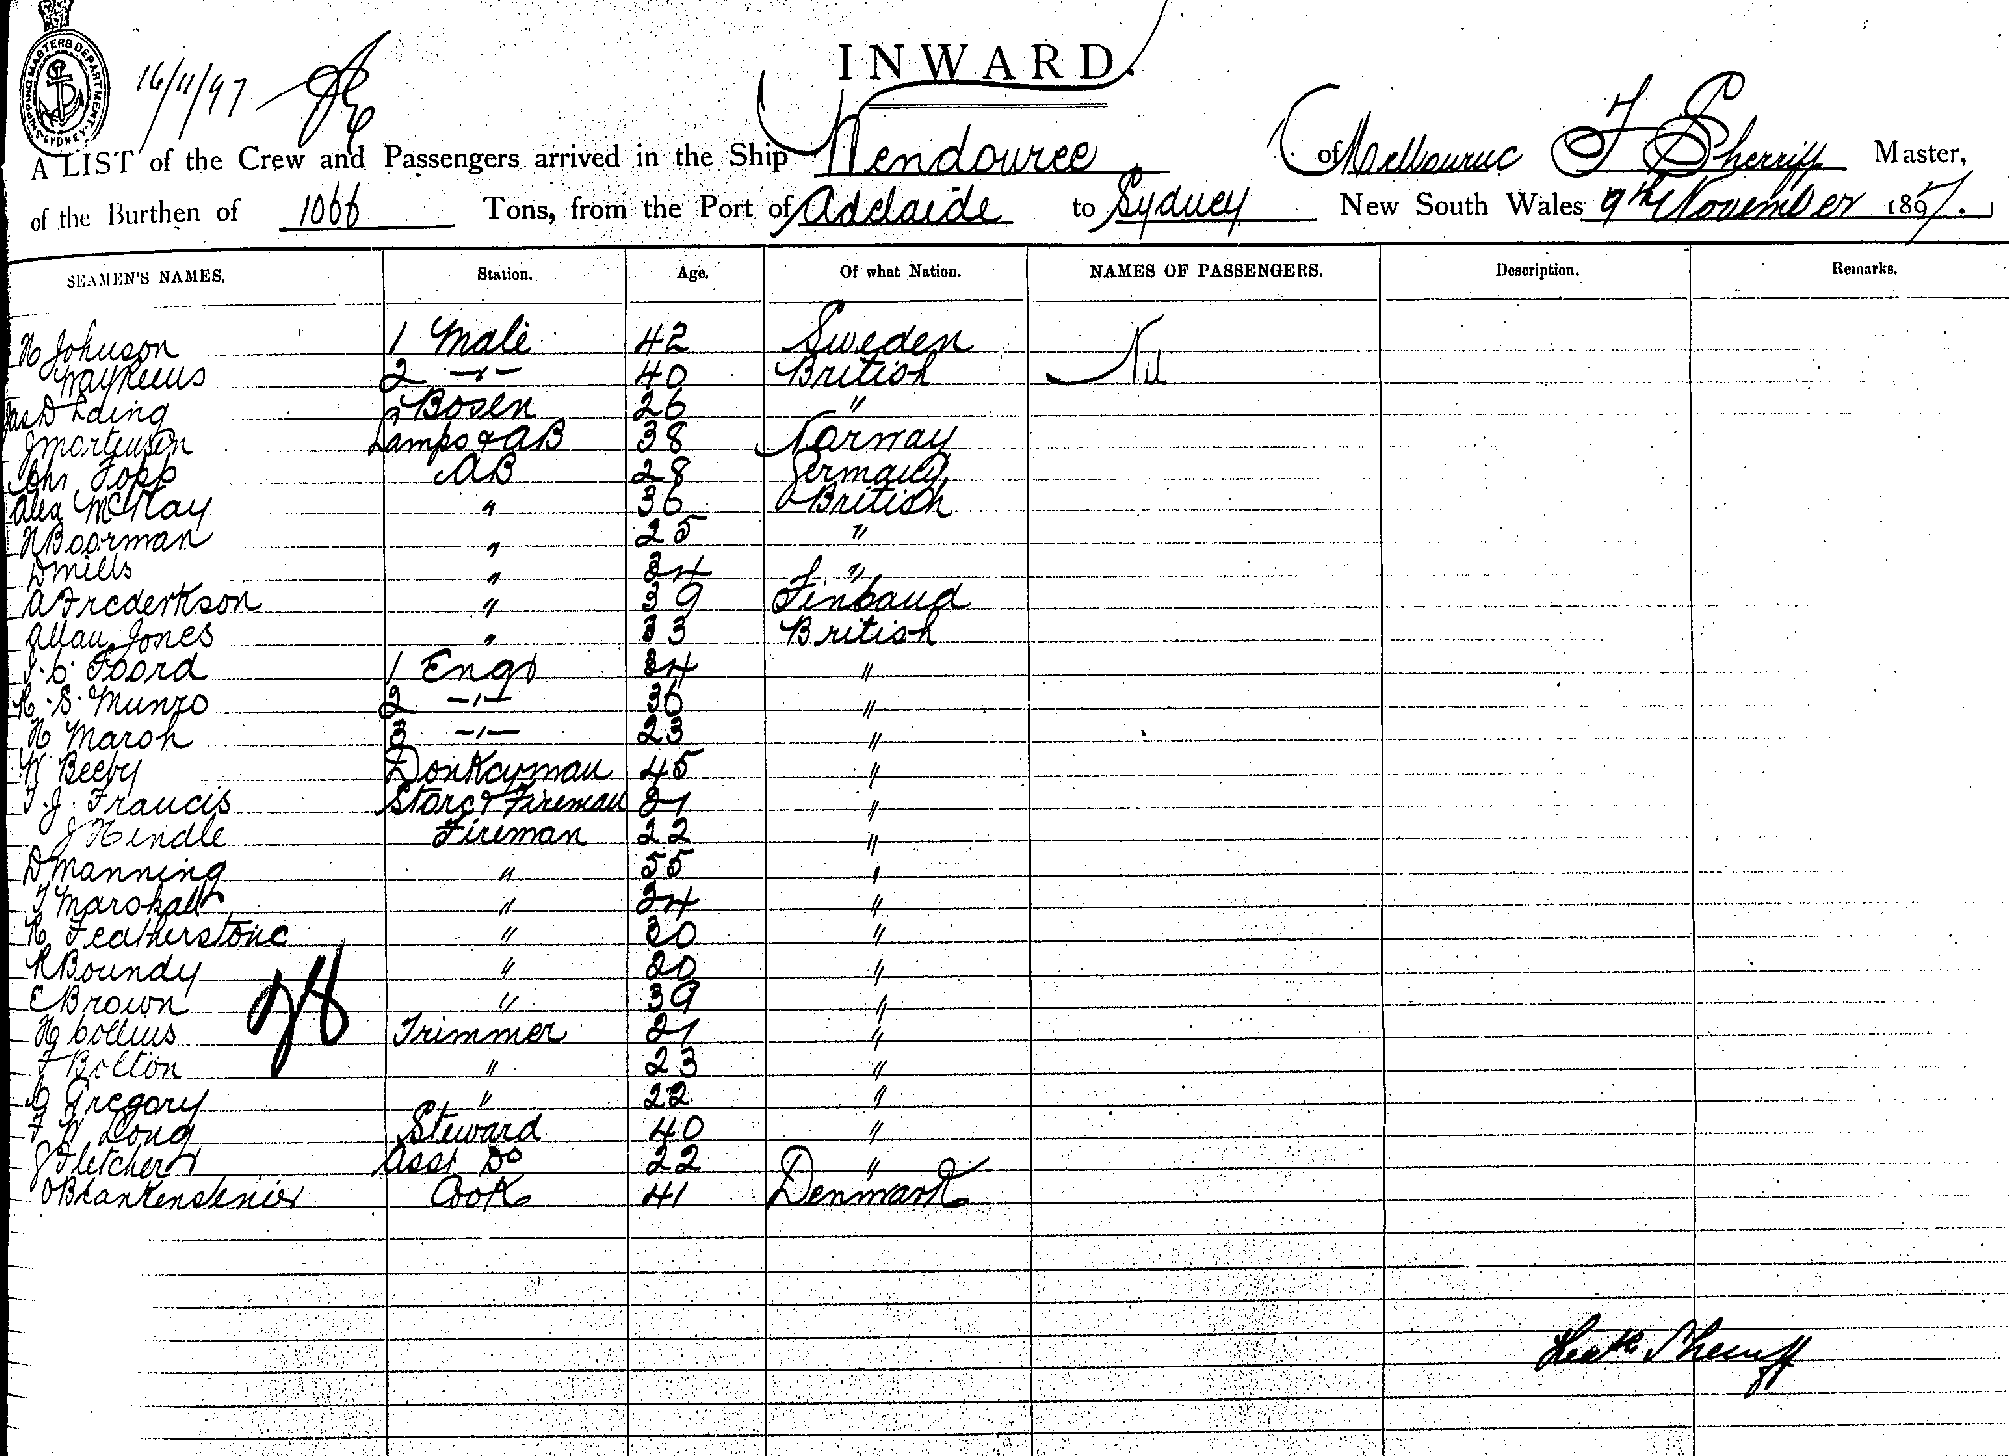 INWARD.
SHIPPING MASTERS DEPARTMENT SYDNEY
16/11/97
A LIST of the Crew and Passengers arrived in the Ship Wendouree of Melbourne F Sherriff Master,
of the Burthen of 1066 Tons, from the Port of Adelaide to Sydney New South Wales 9th November 1897.
SEAMEN'S NAMES. Station. Age. Of what Nation. NAMES OF PASSENGERS. Description. Remarks.
H Johnson 1 Mate 42 Sweden Nil
2 -"- 40 British
Jas D Laing Bosen 26 "
J Mortenson Lamps & AB 38 Norway
Chr Topp AB 28 Germany
Alex McKay " 36 British
H Boorman " 25 "
D Mills " 34 "
A Frederkson " 39 Finland
Allan Jones " 33 British
Foord 1 Engr 34 "
H. S. Munro 2 -"- 36 "
H Marsh 3 -"- 23 "
W Beeby Donkeyman 45 "
F. J. Francis Store & Fireman 21 "
J Hindle Fireman 22 "
D Manning " 55 "
T Marshall " 34 "
H Featherstone " 30 "
R Boundy " 20 "
C Brown " 39 "
H Collins Trimmer 21 "
F Bolton " 23 "
G Gregory " 22 "
F W Long Steward 40 "
J Fletcher Asst Do 22 "
Cook 41 Denmark
28
Sherriff